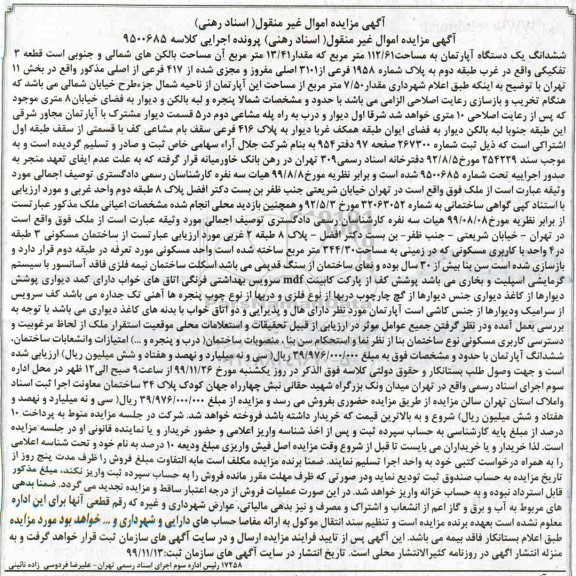 آگهی مزایده اموال غیر منقول( اسناد رهنی)
آگهی مزایده اموال غیر منقول( اسناد رهنی) پرونده اجرایی کلاسه ۹۵۰۰۶۸۵
ششدانگ یک دستگاه آپارتمان به مساحت۱۱۲/۶۱ متر مربع که مقدار۱۳/۴۱ متر مربع آن مساحت بالکن های شمالی و جنوبی است قطعه ۳
تفکیکی واقع در غرب طبقه دوم به پلاک شماره ۱۹۵۸ فرعی از۳۱۰۱ اصلی مفروز و مجزی شده از ۴۱۷ فرعی از اصلی مذکور واقع در بخش ۱۱
تهران با توضیح به اینکه طبق اعلام شهرداری مقدار۷/۵۰ متر مربع از مساحت این آپارتمان از ناحیه شمال جزءطرح خیابان شمالی می باشد که
هنگام تخریب و بازسازی رعایت اصلاحی الزامی می باشد با حدود و مشخصات شمالا پنجره و لبه بالکن و دیوار به فضای خیابان۸ متری موجود
که پس از رعایت اصلاحی ۱۰ متری خواهد شد شرقا اول دیوار و درب به راه پله مشاعی دوم در۵ قسمت دیوار مشترک با آپارتمان مجاور شرقی
این طبقه جنوبا لبه بالکن دیوار به فضای ایوان طبقه همکف غربا دیوار به پلاک ۴۱۶ فرعی سقف بام مشاعی کف با قسمتی از سقف طبقه اول
اشتراکی است که ذیل ثبت شماره ۲۶۷۳۰۰ صفحه ۹۷ دفتر۹۵۴ به بنام شرکت جلال آراء سهامی خاص ثبت و صادر و تسلیم گردیده است و به
موجب سند ۲۵۴۲۲۹ مورخ۹۲/۸/۵ دفترخانه اسناد رسمی۳۰۹ تهران در رهن بانک خاورمیانه قرار گرفته که به علت عدم ایفای تعهد منجر به
صدور اجراییه تحت شماره ۹۵۰۰۶۸۵ شده است و برابر نظریه مورخ۹۹/۸/۸ هیات سه نفره کارشناسان رسمی دادگستری توصیف اجمالی مورد
وثیقه عبارت است از ملک فوق واقع است در تهران خیابان شریعتی جنب ظفر بن بست دکتر افضل پلاک ۸ طبقه دوم واحد غربی و مورد ارزیابی
با استناد کپی گواهی ساختمانی به شماره ۳۲۰۶۳۰۵۲ مورخ ۹۲/۵/۳ و همچنین بازدید محلی انجام شده مشخصات اعیانی ملک مذکور عبارتست
از برابر نظریه مورخ۹۹/۰۸/۰۸ هیات سه نفره کارشناسان رسمی دادگستری توصیف اجمالی مورد وثیقه عبارت است از ملک فوق واقع است
در تهران - خیابان شریعتی - جنب ظفر- بن بست دکتر افضل - پلاک ۸ طبقه ۲ غربی مورد ارزیابی عبارتست از ساختمان مسکونی ۳ طبقه
در۴ واحد با کاربری مسکونی که در زمینی به مساحت۳۴۴/۳۰ متر مربع ساخته شده است واحد مسکونی مورد تعرفه در طبقه دوم قرار دارد و
بازسازی شده است سن بنا بیش از ۳۰ سال بوده و نمای ساختمان از سنگ قدیمی می باشد اسکلت ساختمان نیمه فلزی فاقد آسانسور با سیستم
گرمایشی اسپلیت و بخاری می باشد پوشش کف از پارکت کابینت mdf سرویس بهداشتی فرنگی اتاق های خواب دارای کمد دیواری پوشش
دیوارها از کاغذ دیواری جنس دیوارها از گچ چارچوب دربها از نوع فلزی و دربها از نوع چوب پنجره ها آهنی تک جداره می باشد کف سرویس
از سرامیک ودیوارها از جنس کاشی است آپارتمان مورد نظر دارای هال و پذیرایی و دو اتاق خواب با بدنه های کاغذ دیواری می باشد با توجه به
بررسی بعمل آمده ودر نظر گرفتن جمیع عوامل موثر در ارزیابی از قبیل تحقیقات و استعلامات محلی موقعیت استقرار ملک از لحاظ مرغوبیت و
دسترسی کاربری مسکونی نوع ساختمان بنا از نظر نما و استحکام سن بنا، منصوبات ساختمان( درب و پنجره و ...) امتیازات وانشعابات ساختمان،
ششدانگ آپارتمان با حدود و مشخصات فوق به مبلغ ۳۹/۹۷۶/۰۰۰/۰۰۰ ریال( سی و نه میلیارد و نهصد و هفتاد و شش میلیون ریال) ارزیابی شده
است و جهت وصول طلب بستانکار و حقوق دولتی کلاسه فوق الذکر در روز یکشنبه مورخ ۹۹/۱۱/۲۶ از ساعت۹ صبح الی۱۲ ظهر در محل اداره
سوم اجرای اسناد رسمی واقع در تهران میدان ونک بزرگراه شهید حقانی نبش چهارراه جهان کودک پلاک ۳۴ ساختمان معاونت اجرا ثبت اسناد
واملاک استان تهران سالن مزایده از طریق مزایده حضوری بفروش می رسد و مزایده از مبلغ ۳۹/۹۷۶/۰۰۰/۰۰۰ ریال( سی و نه میلیارد و نهصد و
هفتاد و شش میلیون ریال) شروع و به بالاترین قیمت که خریدار داشته باشد فروخته خواهد شد. شرکت در جلسه مزایده منوط به پرداخت ۱۰
درصد از مبلغ پایه کارشناسی به حساب سپرده ثبت و پس از اخذ شناسه واریز اعلامی و حضور خریدار و یا نماینده قانونی او در جلسه مزایده
است. لذا خریدار و یا خریداران می بایست تا قبل از شروع وقت مزایده اصل فیش واریزی مبلغ ودیعه ۱۰ درصد به نام خود و تحت شناسه اعلامی
را به همراه درخواست کتبی خود به واحد اجرا تسلیم نمایند. ضمنا برنده مزایده مکلف است مابه التفاوت مبلغ فروش را ظرف مدت پنج روز از
تاریخ مزایده به حساب صندوق ثبت تودیع نماید ودر صورتی که ظرف مهلت مقرر مانده فروش را به حساب سپرده ثبت واریز نکند، مبلغ مذکور
قابل استرداد نبوده و به حساب خزانه واریز خواهد شد. در این صورت عملیات فروش از درجه اعتبار ساقط و مزایده تجدید می گردد. ضمنا بدهی
های مربوط به آب و برق و گاز اعم از انشعاب و اشتراک و مصرف و نیز بدهی مالیاتی، عوارض شهرداری و غیره که رقم قطعی آنها برای این اداره
معلوم نشده است بعهده برنده مزایده است و تنظیم سند انتقال موکول به ارائه مفاصا حساب های دارایی و شهرداری و ... خواهد بود مورد مزایده
طبق اعلام بستانکار فاقد بیمه می باشد. این آگهی پس از تایید فرایند مزایده ارسال و در سایت آگهی های سازمان ثبت قرار خواهد گرفت و به
منزله انتشار اگهی در روزنامه کثیرالانتشار محلی است. تاریخ انتشار در سایت آگهی های سازمان ثبت:۹۹/۱۱/۱۳
۱۷۲۵۸ رئیس اداره سوم اجرای اسناد رسمی تهران- علیرضا فردوسی زاده نائینی